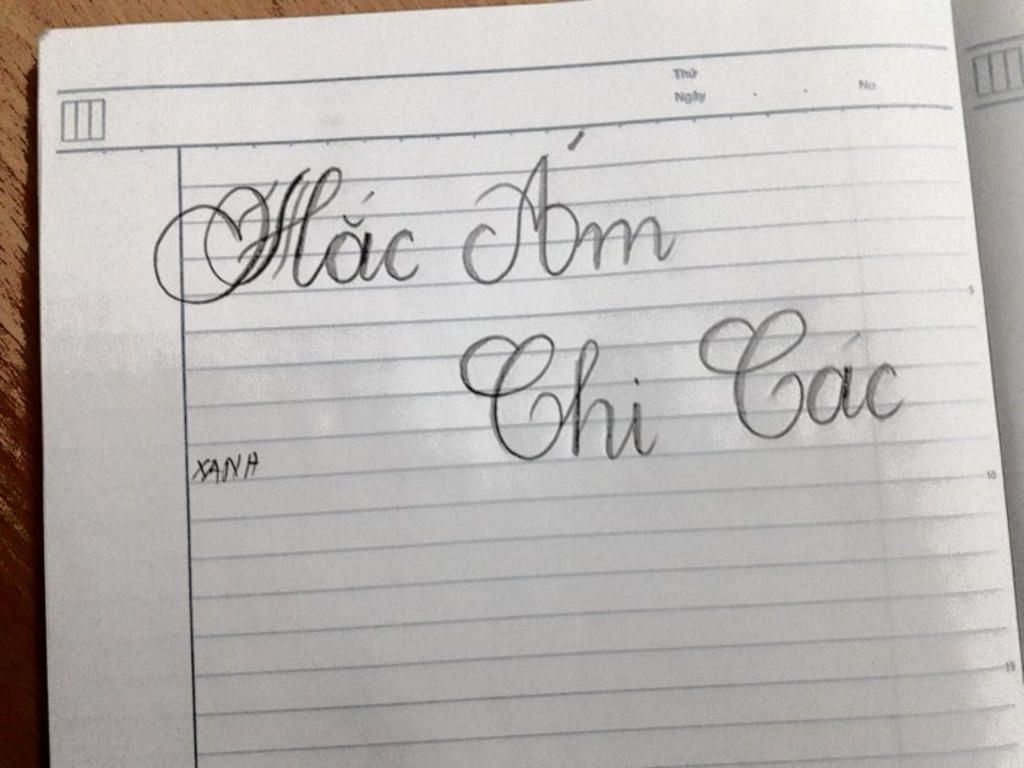 Thứ
Ngày . . No.
Hắc Ám
Chi Các
XANH
5
10
15